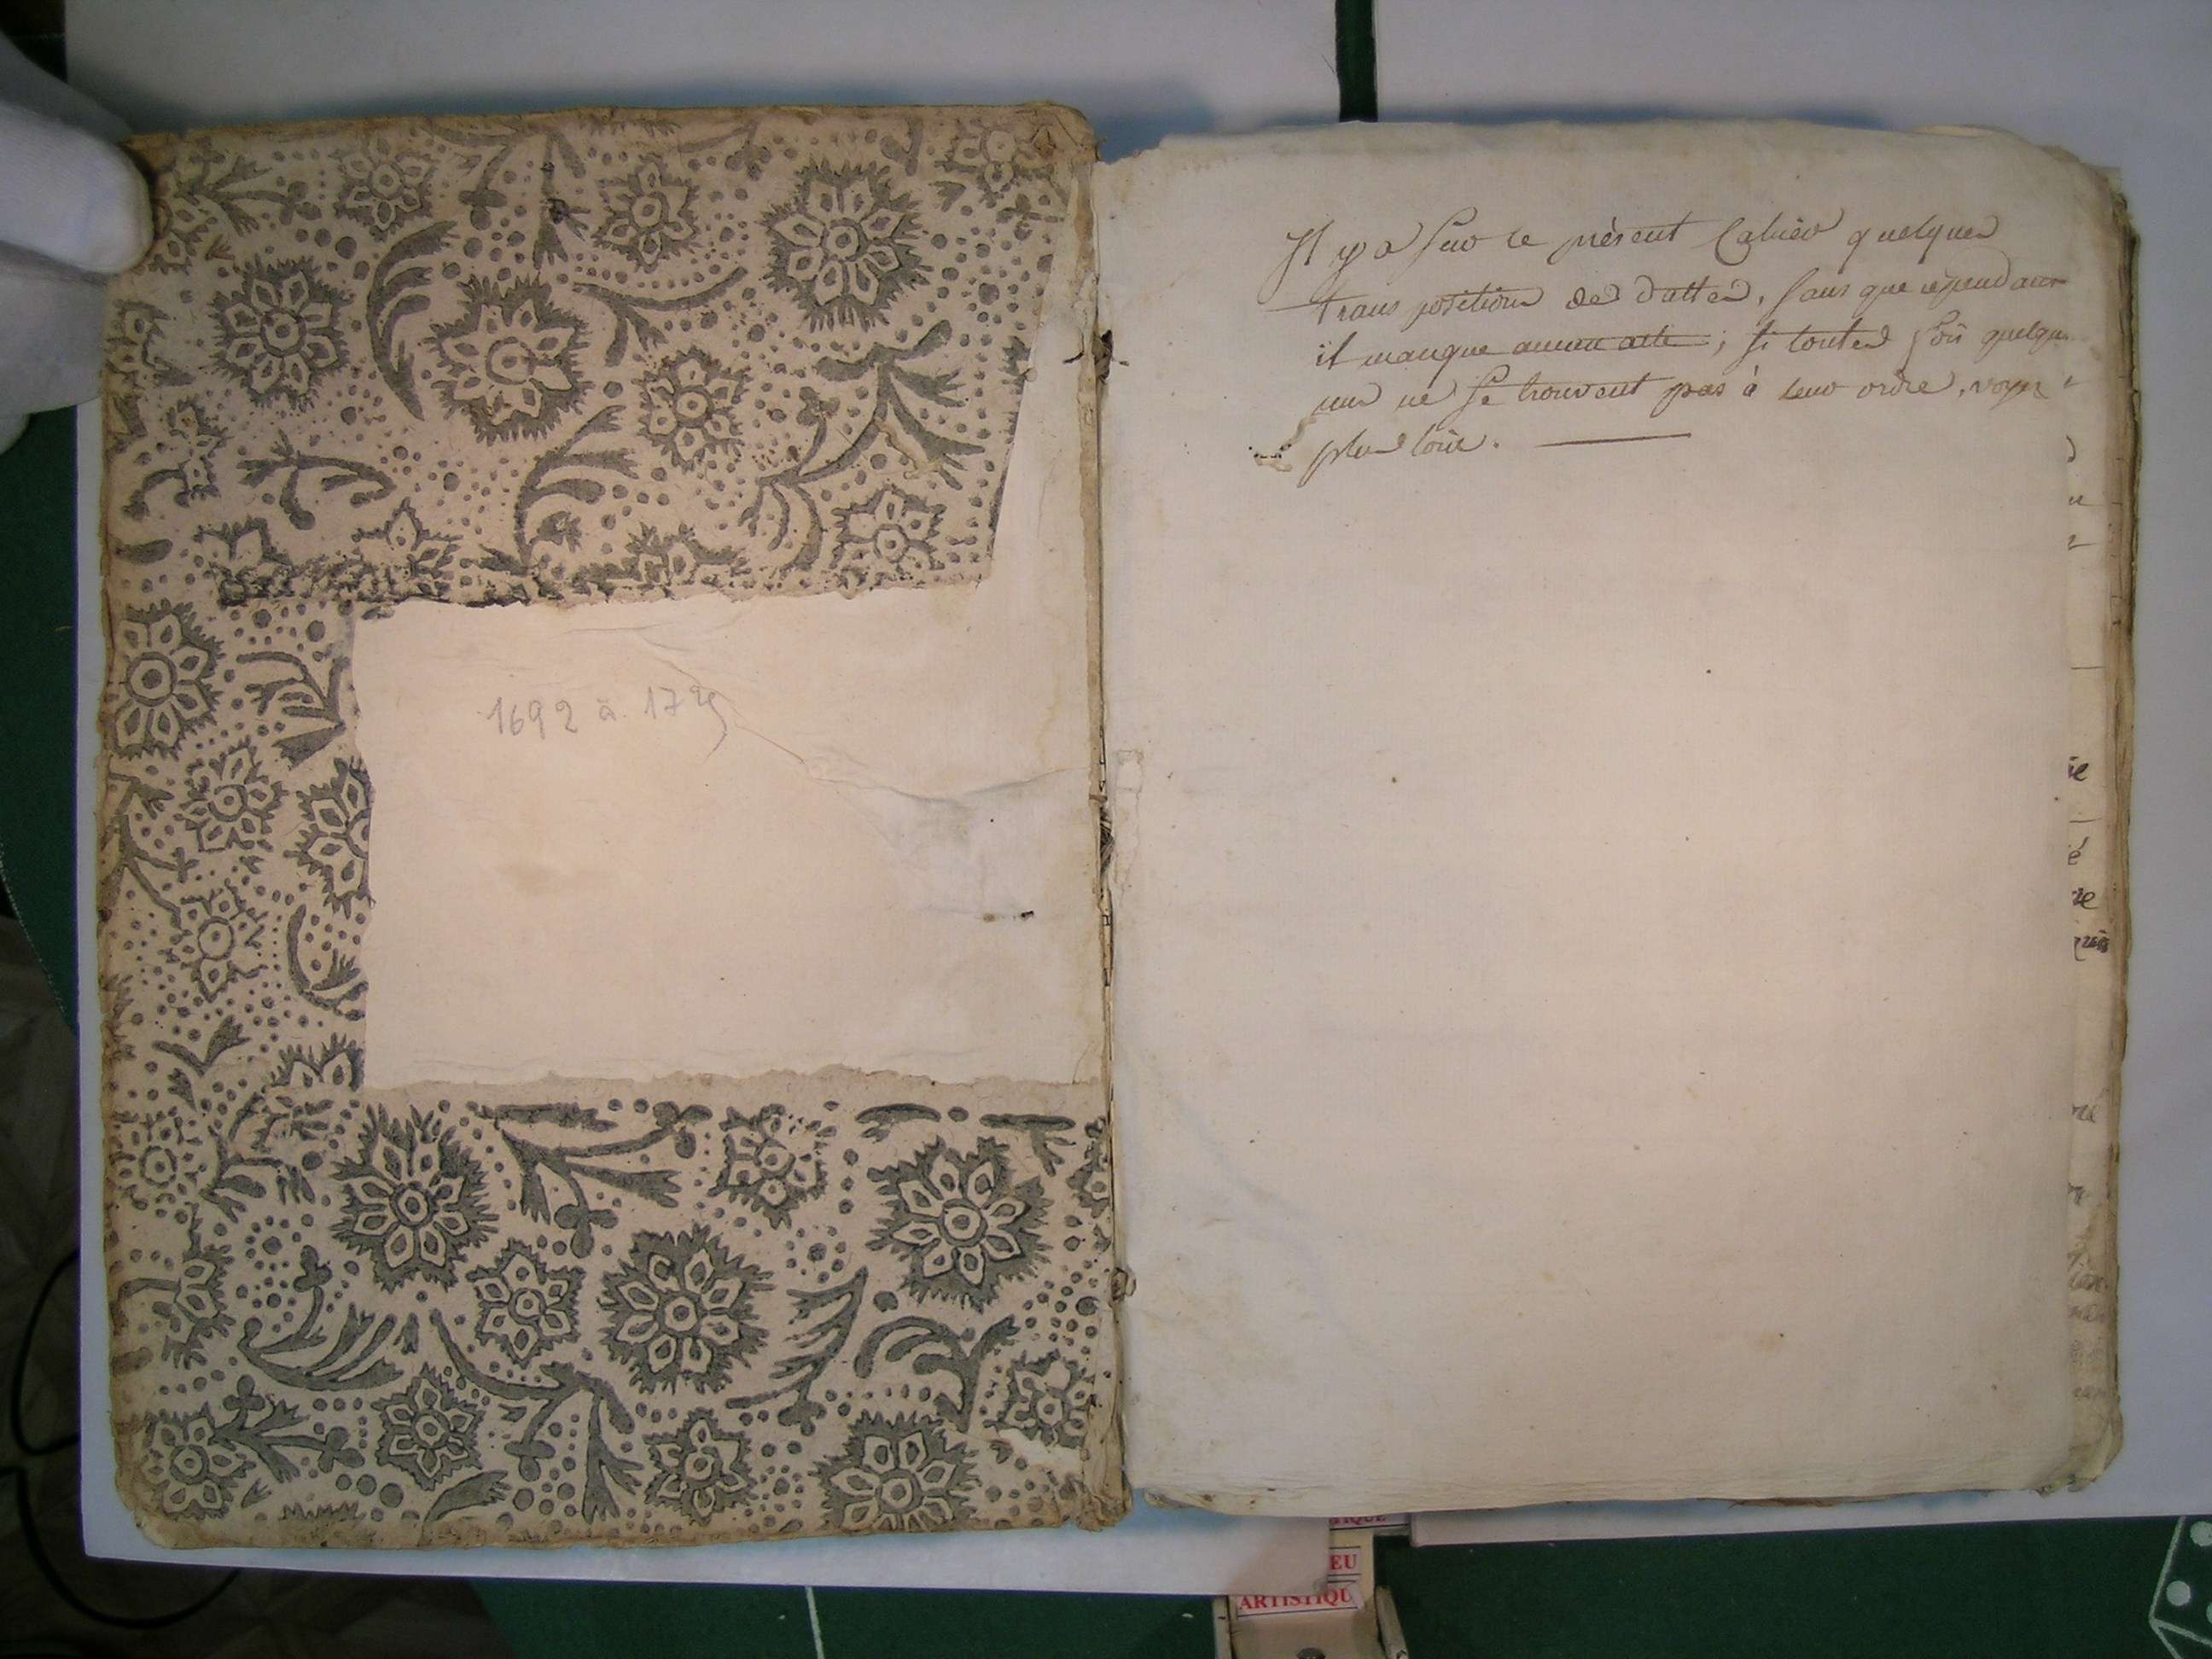 1692 à 17
Il y a sur le présent Cahier quelques
transpositions de dattes, sans que cependant
il manque aucun acte ; si toutes fois quelqu
uns ne se trouvent pas à leur ordre, voyez
plus loin.
ie
é
re
EU
ARTISTIQU